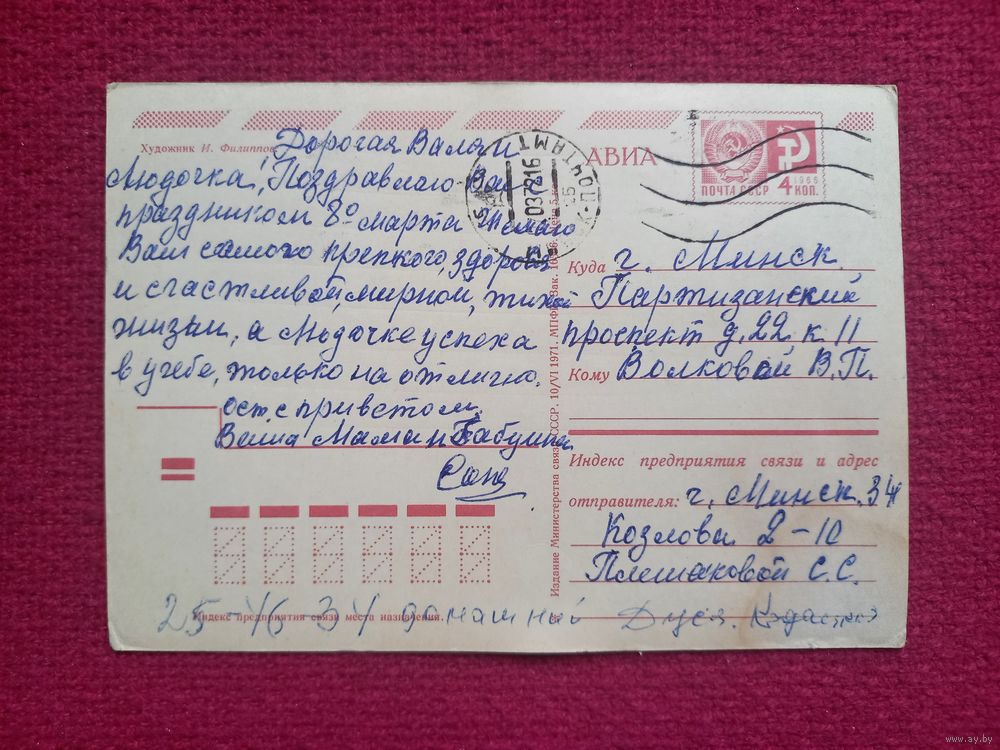 Художник И. Филиппов
Дорогая Валя и
Людочка! Поздравляю Вас с
праздником 8º марта Желаю
Вам самого крепкого здоровья
и счастливой, мирной, тихой
жизни, а Людочке успеха
в учебе, только на отлично.
ост. с приветом.
Ваша Мама и Бабушка
Соня
АВИА
ПОЧТА СССР
4 КОП.
1966
ПОЧТАМТ
Куда г. Минск.
Партизанский
проспект д. 22 к 11
Кому Волковой В.П.
Индекс предприятия связи и адрес
отправителя: г. Минск. 34
Козлова 2-10
Плешаковой С.С.
Издание Министерства связи СССР. 10/VI 1971. МПФГ
Индекс предприятия связи места назначения.
25-46-34 домашний Дуся.
www.ay.by